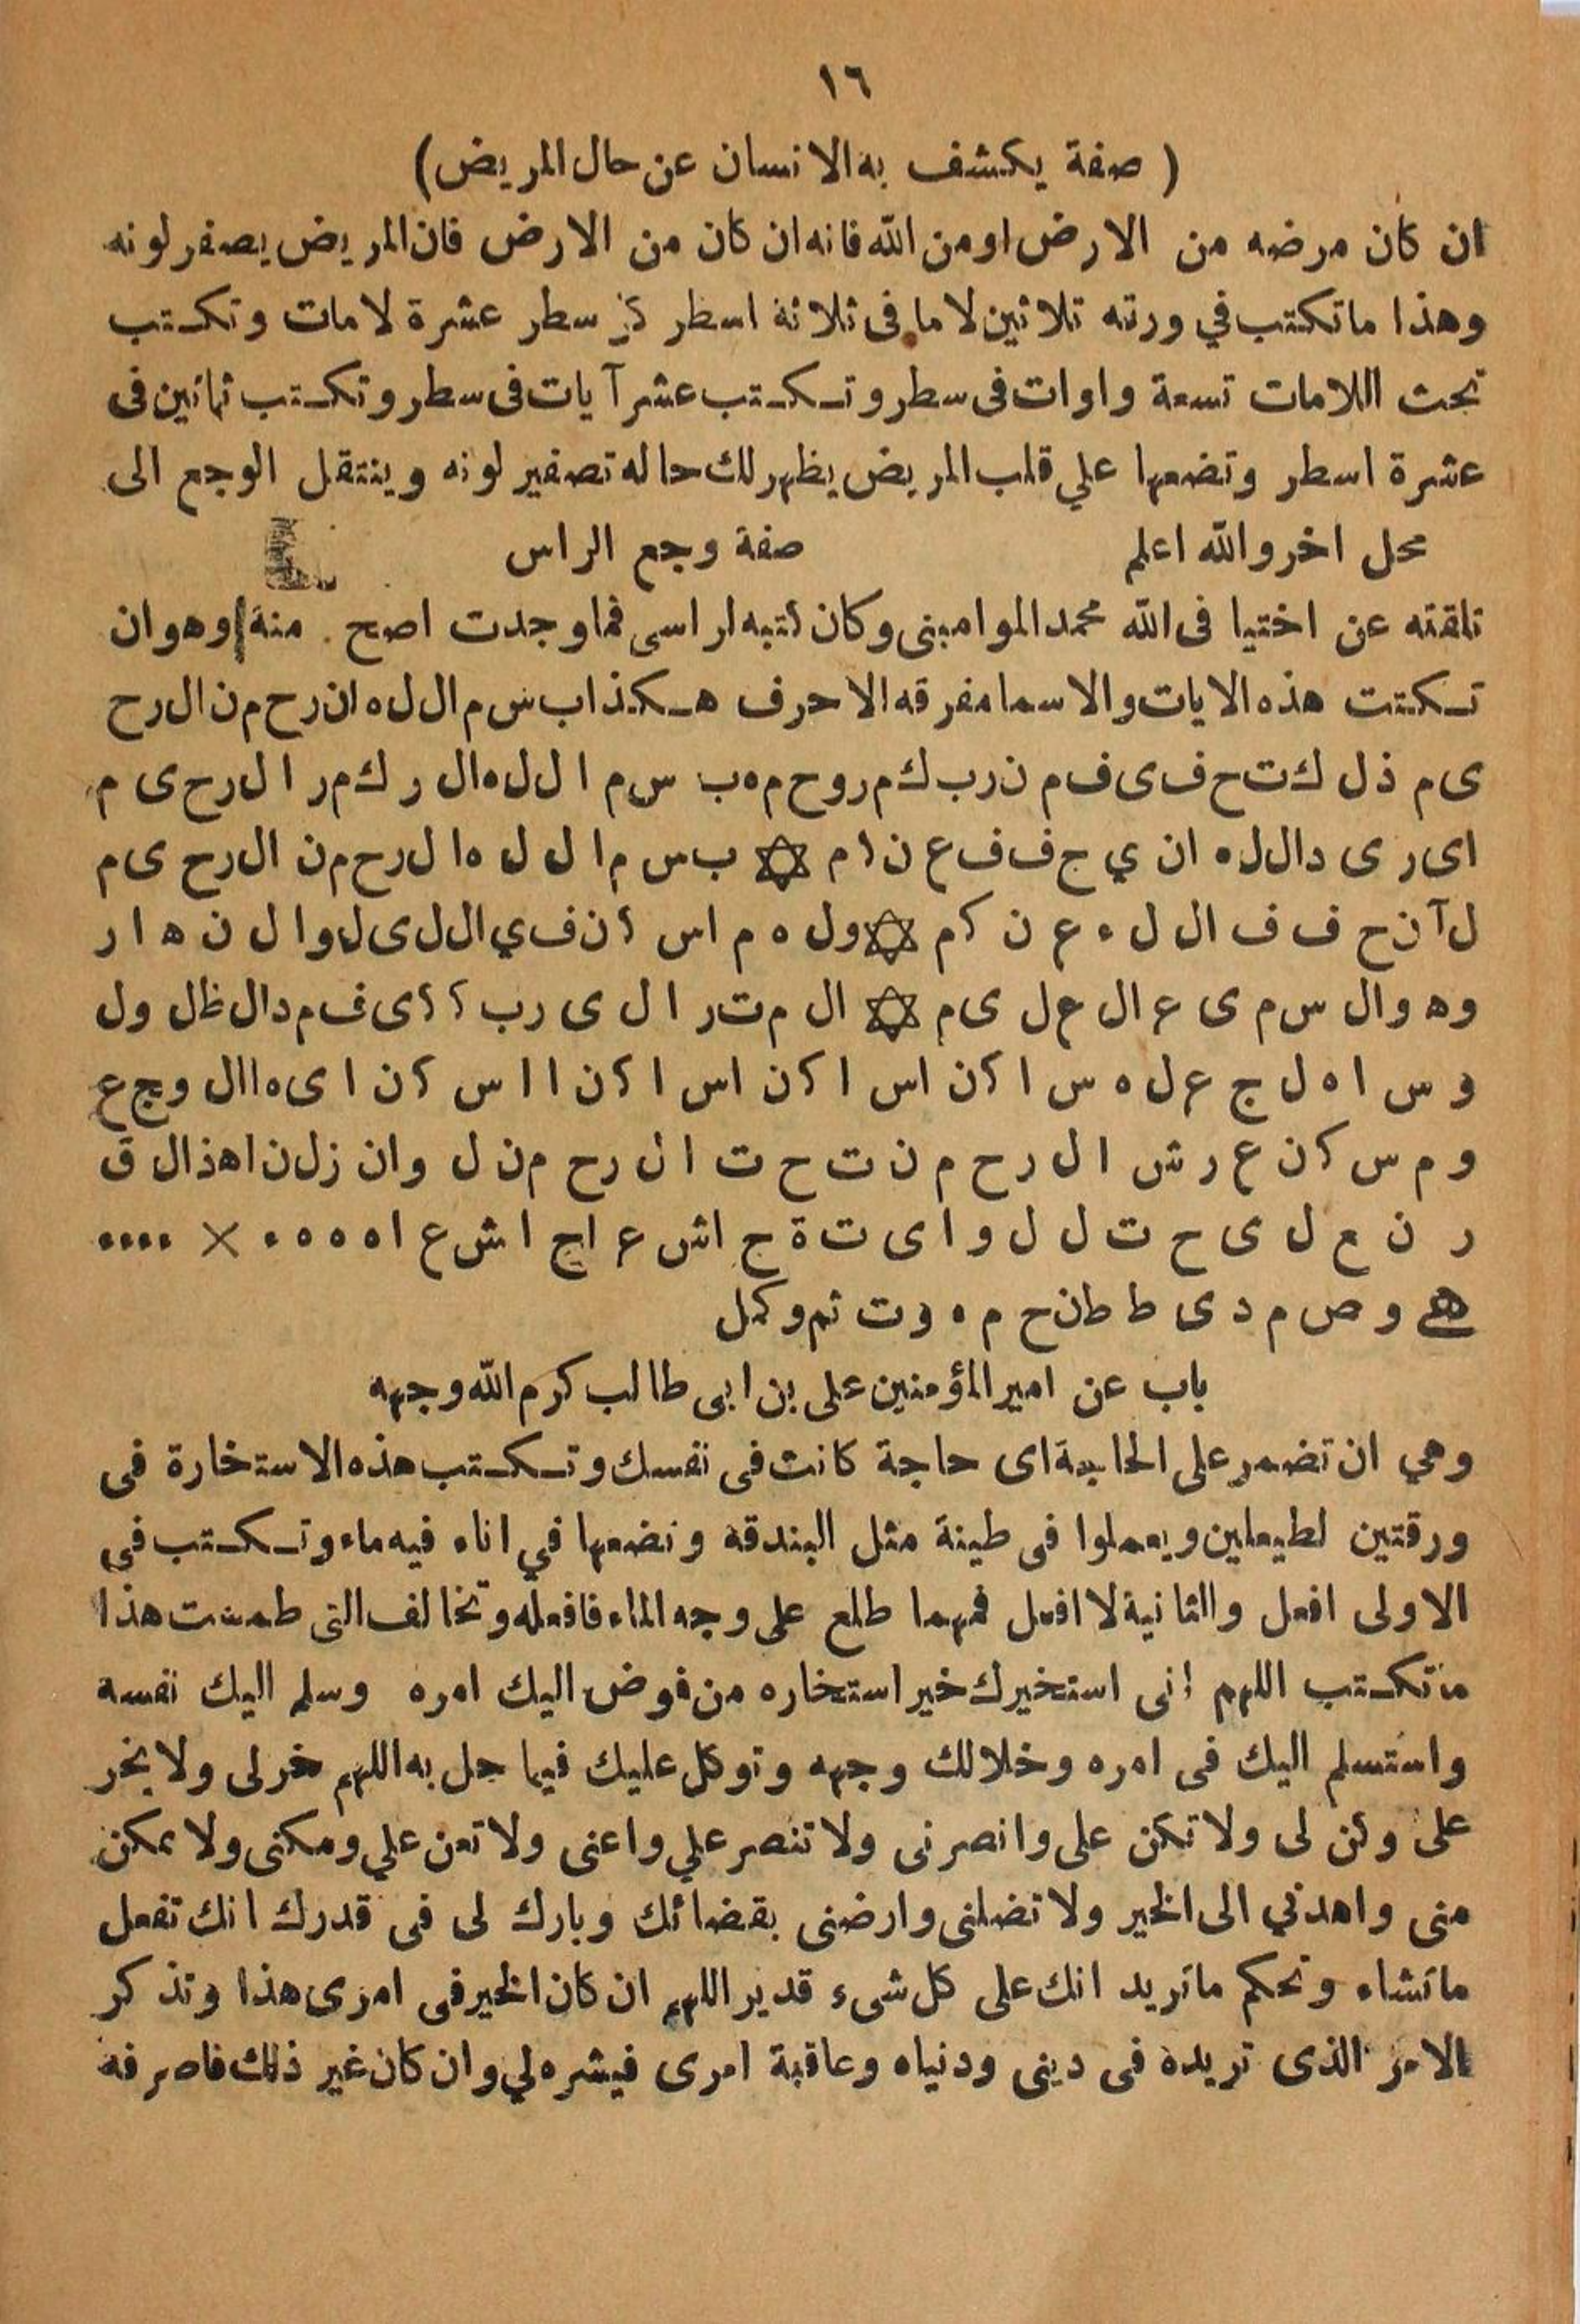 ١٦
( صفة يكشف به الانسان عن حال المريض)
ان كان مرضه من الارض او من الله فانه ان كان من الارض فان المريض يصفر لونه
وهذا ما تكتب في ورقه ثلاثين لاما فى ثلاثة اسطر كل سطر عشرة لامات وتكتب
تحت اللامات تسعة واوات فى سطر وتكتب عشر آيات فى سطر وتكتب ثمانين فى
عشرة اسطر وتضعها علي قلب المريض يظهر لك حاله تصفير لونه وينتقل الوجع الى
محل اخر والله اعلم صفة وجع الراس
تلقته عن اختيا فى الله محمد الموامبنى وكان اتبه لراسى فما وجدت اصح منه وهو ان
تكتت هذه الايات والاسما مفرقه الاحرف هكذا ب س م ال ل ه ا ن ر ح م ن ال ر ح
ى م ذ ل ك ت ح ف ى ف م ن ر ب ك م ر و ح م ه ب س م ا ل ل ه ال ر ك م ر ا ل ر ح ى م
اى ر ى د ال ل ه ان ي ج ف ف ع ن ا م ✡ ب س م ا ل ل ه ا ل ر ح م ن ال ر ح ى م
ل آ ن ح ف ف ال ل ه ع ن ك م ✡ و ل ه م ا س ك ن ف ي ال ل ى ل و ا ل ن ه ا ر
و ه و ال س م ى ع ال ع ل ى م ✡ ال م ت ر ا ل ى ر ب ك ك ى ف م د ال ظ ل و ل
و س ا ه ل ج ع ل ه س ا ك ن ا س ا ك ن ا س ا ك ن ا ا س ك ن ا ى ه اال و ج ع
و م س ك ن ع ر ش ا ل ر ح م ن ت ح ت ا ل ر ح م ن ل و ان ز ل ن ا ه ذ ال ق
ر ن ع ل ى ح ت ل ل و ا ى ت ة ج اش ع اج ا ش ع ا ه ه ه ه × ....
هـ و ص م د ى ط ط ن ح م ه و ت تم وكمل
باب عن امير المؤمنين على بن ابى طالب كرم الله وجهه
وهي ان تضمر على الحاجة اى حاجة كانت فى نفسك وتكتب هذه الاستخارة فى
ورقتين لطيعلين ويعملوا فى طينة مثل البندقة وتضعها في اناء فيه ماء وتكتب في
الاولى افعل والثانية لا افعل فمهما طلع على وجه الماء فافعله وتخالف التى طمست هذا
ما تكتب اللهم انى استخيرك خير استخاره من فوض اليك امره وسلم اليك نفسه
واستسلم اليك فى امره وخلالك وجهه وتوكل عليك فيما جل به اللهم خر لى ولا تخر
على وكن لى ولا تكن على وانصرنى ولا تنصر علي واعنى ولا تعن علي ومكنى ولا تمكن
منى واهدني الى الخير ولا تضلنى وارضنى بقضائك وبارك لى فى قدرك انك تفعل
ما تشاء وتحكم ما تريد انك على كل شىء قدير اللهم ان كان الخير فى امرى هذا وتذكر
الامر الذى تريده فى دينى ودنياه وعاقبة امرى فيشره لي وان كان غير ذلك فاصرفه